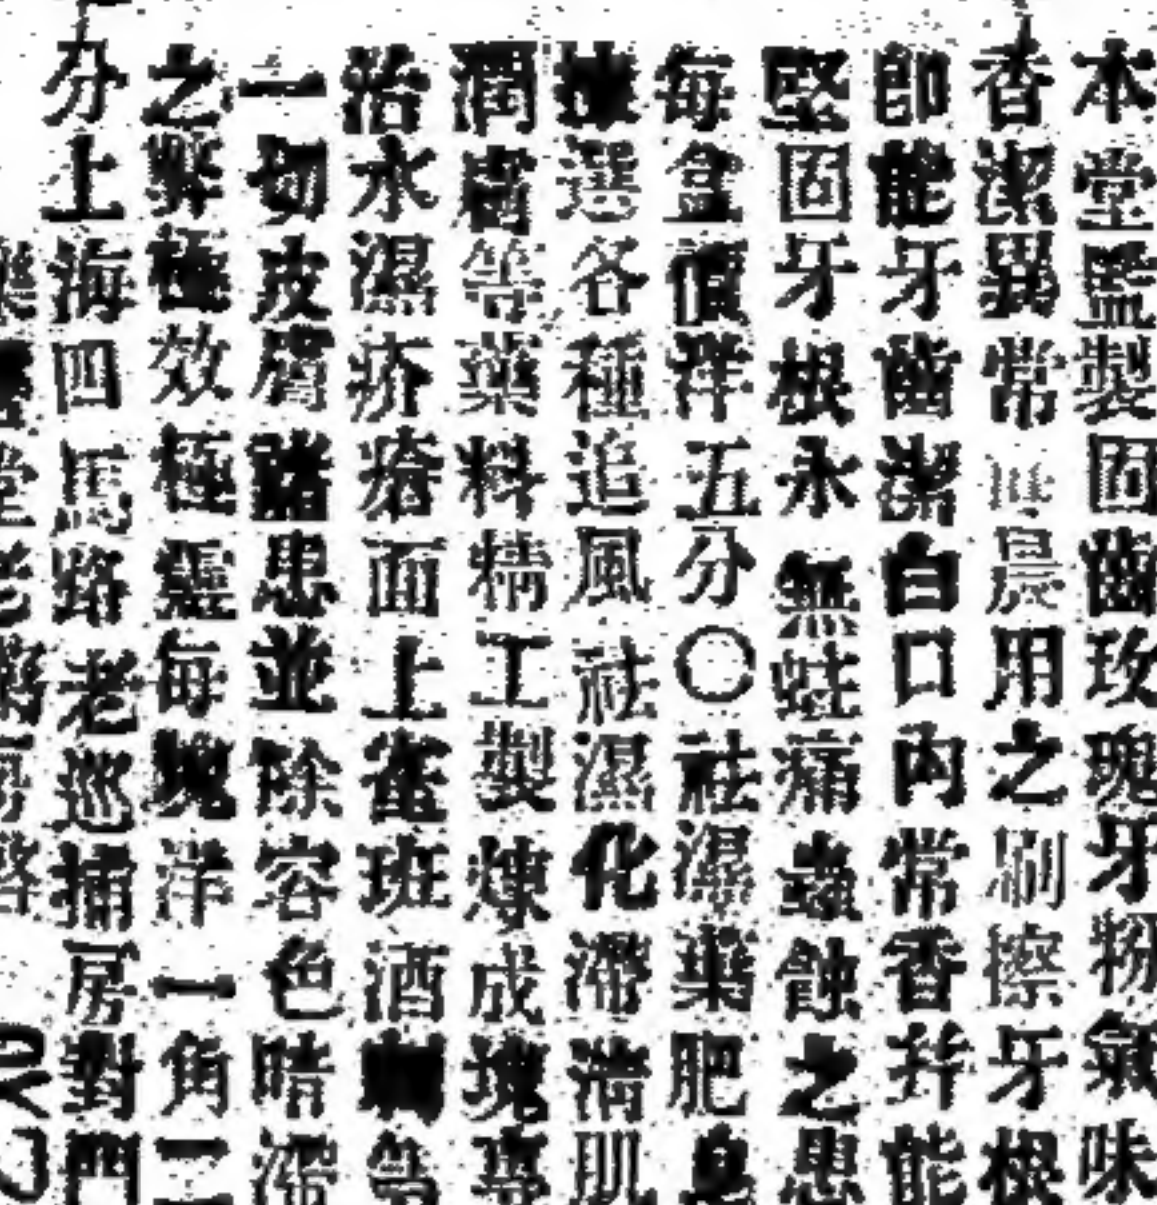 本堂監製固齒玫瑰牙粉氣味
香潔異常晨用之刷擦牙根
即能牙齒潔白口內常香并能
堅固牙根永無蛀痛蟲蝕之患
每盒價洋五分〇祛濕藥肥皂
選各種追風祛濕化滯滿肌
潤膚等藥料精工製煉成塊專
治水濕疥瘡面上雀班酒刺等
一切皮膚諸患並除容色暗滯
之弊極效極靈每塊洋一角二
分上海四馬路老巡捕房對門